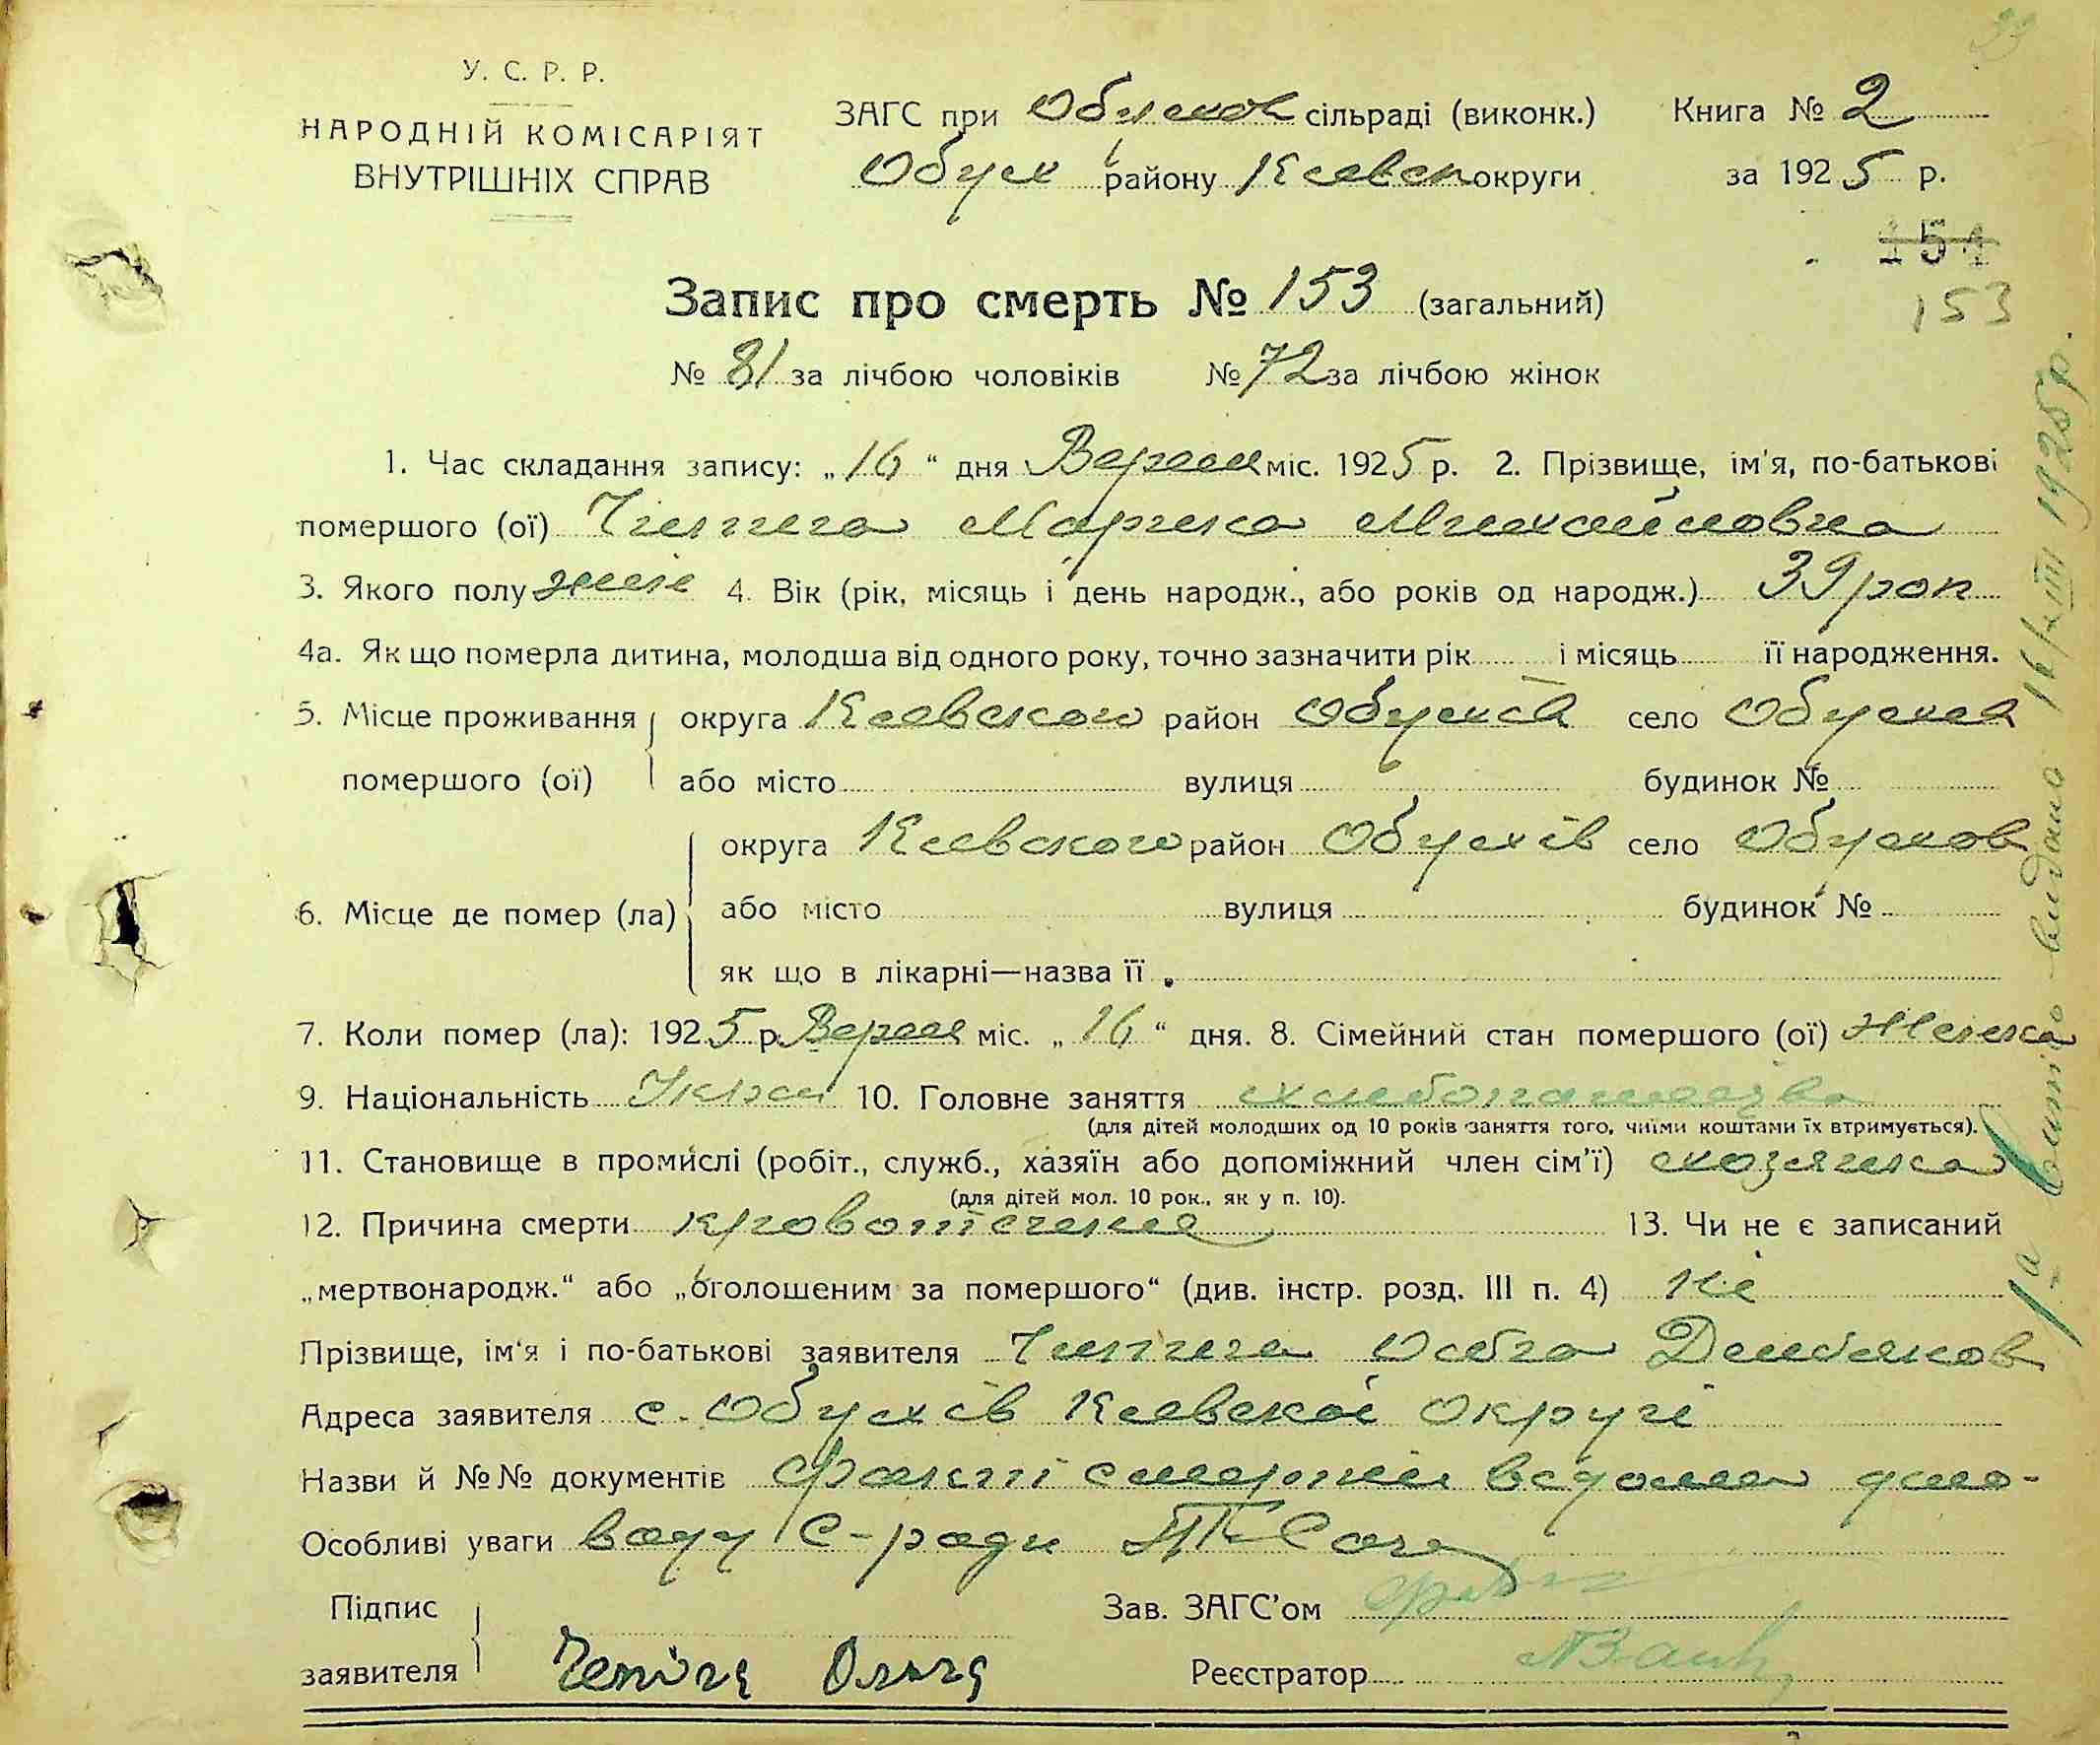 У. С. Р. Р.
НАРОДНІЙ КОМІСАРІЯТ
ВНУТРІШНІХ СПРАВ
ЗАГС при Обухов сільраді (виконк.)
Обух району Киевск округи
Книга № 2
за 1925 р.
154
153
Запис про смерть № 153 (загальний)
№ 81 за лічбою чоловіків № 72 за лічбою жінок
1. Час складання запису: „16“ дня Вересня міс. 1925 р. 2. Прізвище, ім'я, по-батькові
помершого (ої) Чипига Марина Михайловна
3. Якого полу жін 4. Вік (рік, місяць і день народж., або років од народж.) 39 рок
4а. Як що померла дитина, молодша від одного року, точно зазначити рік і місяць її народження.
5. Місце проживання округа Киевского район Обухов село Обухов
помершого (ої) або місто вулиця будинок №
округа Киевского район Обухів село Обухов
6. Місце де помер (ла) або місто вулиця будинок №
як що в лікарні—назва її
7. Коли помер (ла): 1925 р. Вересня міс. „16“ дня. 8. Сімейний стан помершого (ої) Жената
9. Національність Украї 10. Головне заняття хлебопашество
(для дітей молодших од 10 років заняття того, чиїми коштами їх втримується).
11. Становище в промислі (робіт., служб., хазяїн або допоміжний член сім'ї) хозяйка
(для дітей мол. 10 рок., як у п. 10).
12. Причина смерти кровотечение 13. Чи не є записаний
„мертвонародж.“ або „оголошеним за помершого“ (див. інстр. розд. III п. 4) Ні
Прізвище, ім'я і по-батькові заявителя Чипига Demьянов
Адреса заявителя с. Обухів Киевскої Округі
Назви й №№ документів факт смерти
Особливі уваги С-ради
Підпис
заявителя Чепіга Ольга
Зав. ЗАГС'ом
Реєстратор
1а видано 16/VIII 1925р.